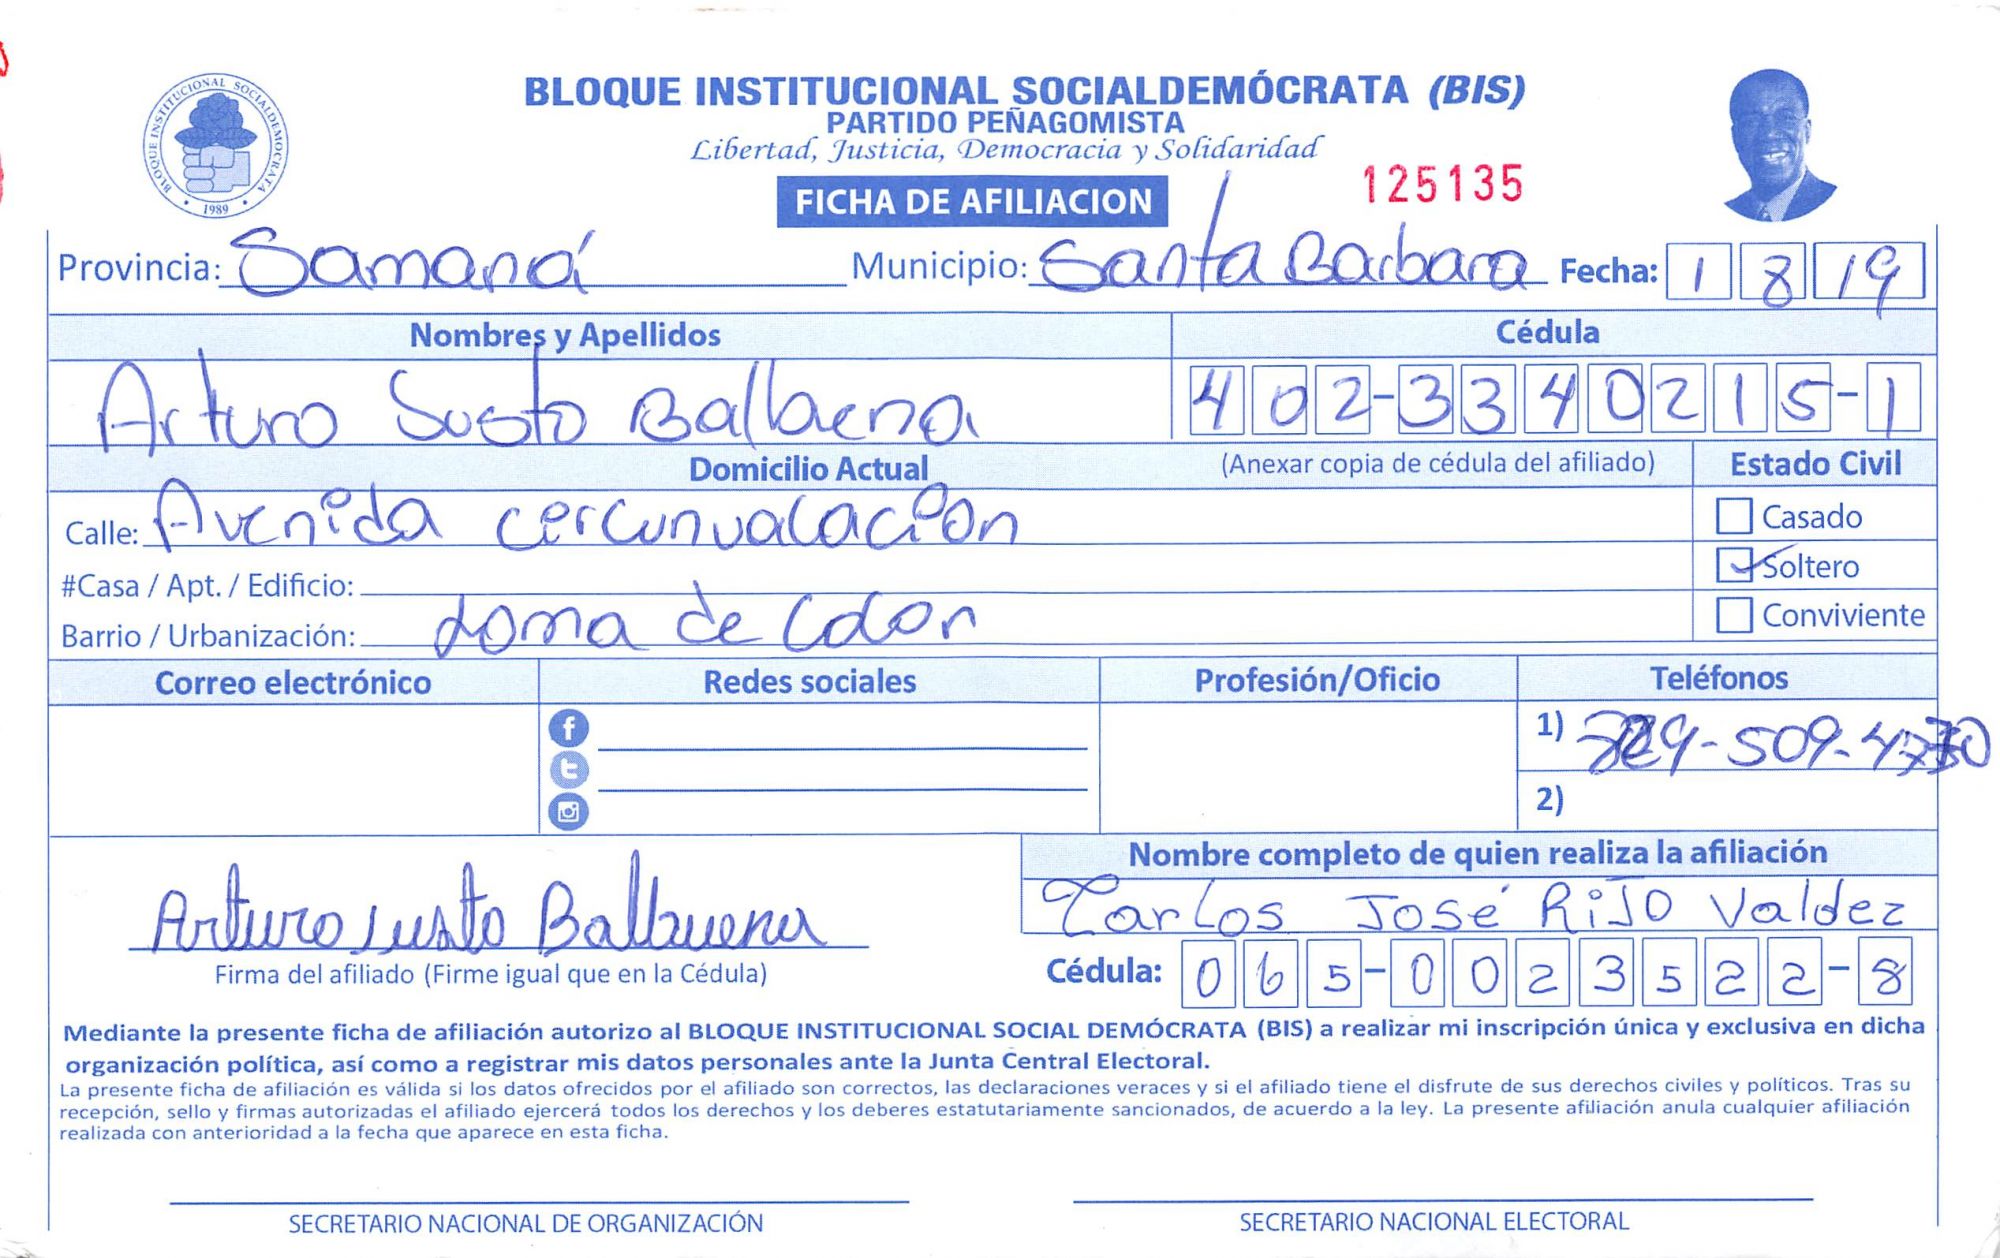 BLOQUE INSTITUCIONAL SOCIALDEMÓCRATA (BIS)
PARTIDO PEÑAGOMISTA
Libertad, Justicia, Democracia y Solidaridad
BLOQUE INSTITUCIONAL SOCIALDEMOCRATA
1989
FICHA DE AFILIACION
125135
Provincia: Samaná Municipio: Santa Barbara Fecha: 1 8 19
Nombres y Apellidos Cédula
Arturo Justo Balbuena 402-3340215-1
Domicilio Actual (Anexar copia de cédula del afiliado) Estado Civil
Calle: Avenida circunvalacion
Casado
Soltero
#Casa / Apt. / Edificio:
Barrio / Urbanización: Loma de Colon
Conviviente
Correo electrónico Redes sociales Profesión/Oficio Teléfonos
1) 509
2)
Nombre completo de quien realiza la afiliación
Arturo Justo Balbuena
Carlos José Rijo Valdez
Firma del afiliado (Firme igual que en la Cédula)
Cédula: 065-0023522-8
Mediante la presente ficha de afiliación autorizo al BLOQUE INSTITUCIONAL SOCIAL DEMÓCRATA (BIS) a realizar mi inscripción única y exclusiva en dicha
organización política, así como a registrar mis datos personales ante la Junta Central Electoral.
La presente ficha de afiliación es válida si los datos ofrecidos por el afiliado son correctos, las declaraciones veraces y si el afiliado tiene el disfrute de sus derechos civiles y políticos. Tras su
recepción, sello y firmas autorizadas el afiliado ejercerá todos los derechos y los deberes estatutariamente sancionados, de acuerdo a la ley. La presente afiliación anula cualquier afiliación
realizada con anterioridad a la fecha que aparece en esta ficha.
SECRETARIO NACIONAL DE ORGANIZACIÓN SECRETARIO NACIONAL ELECTORAL